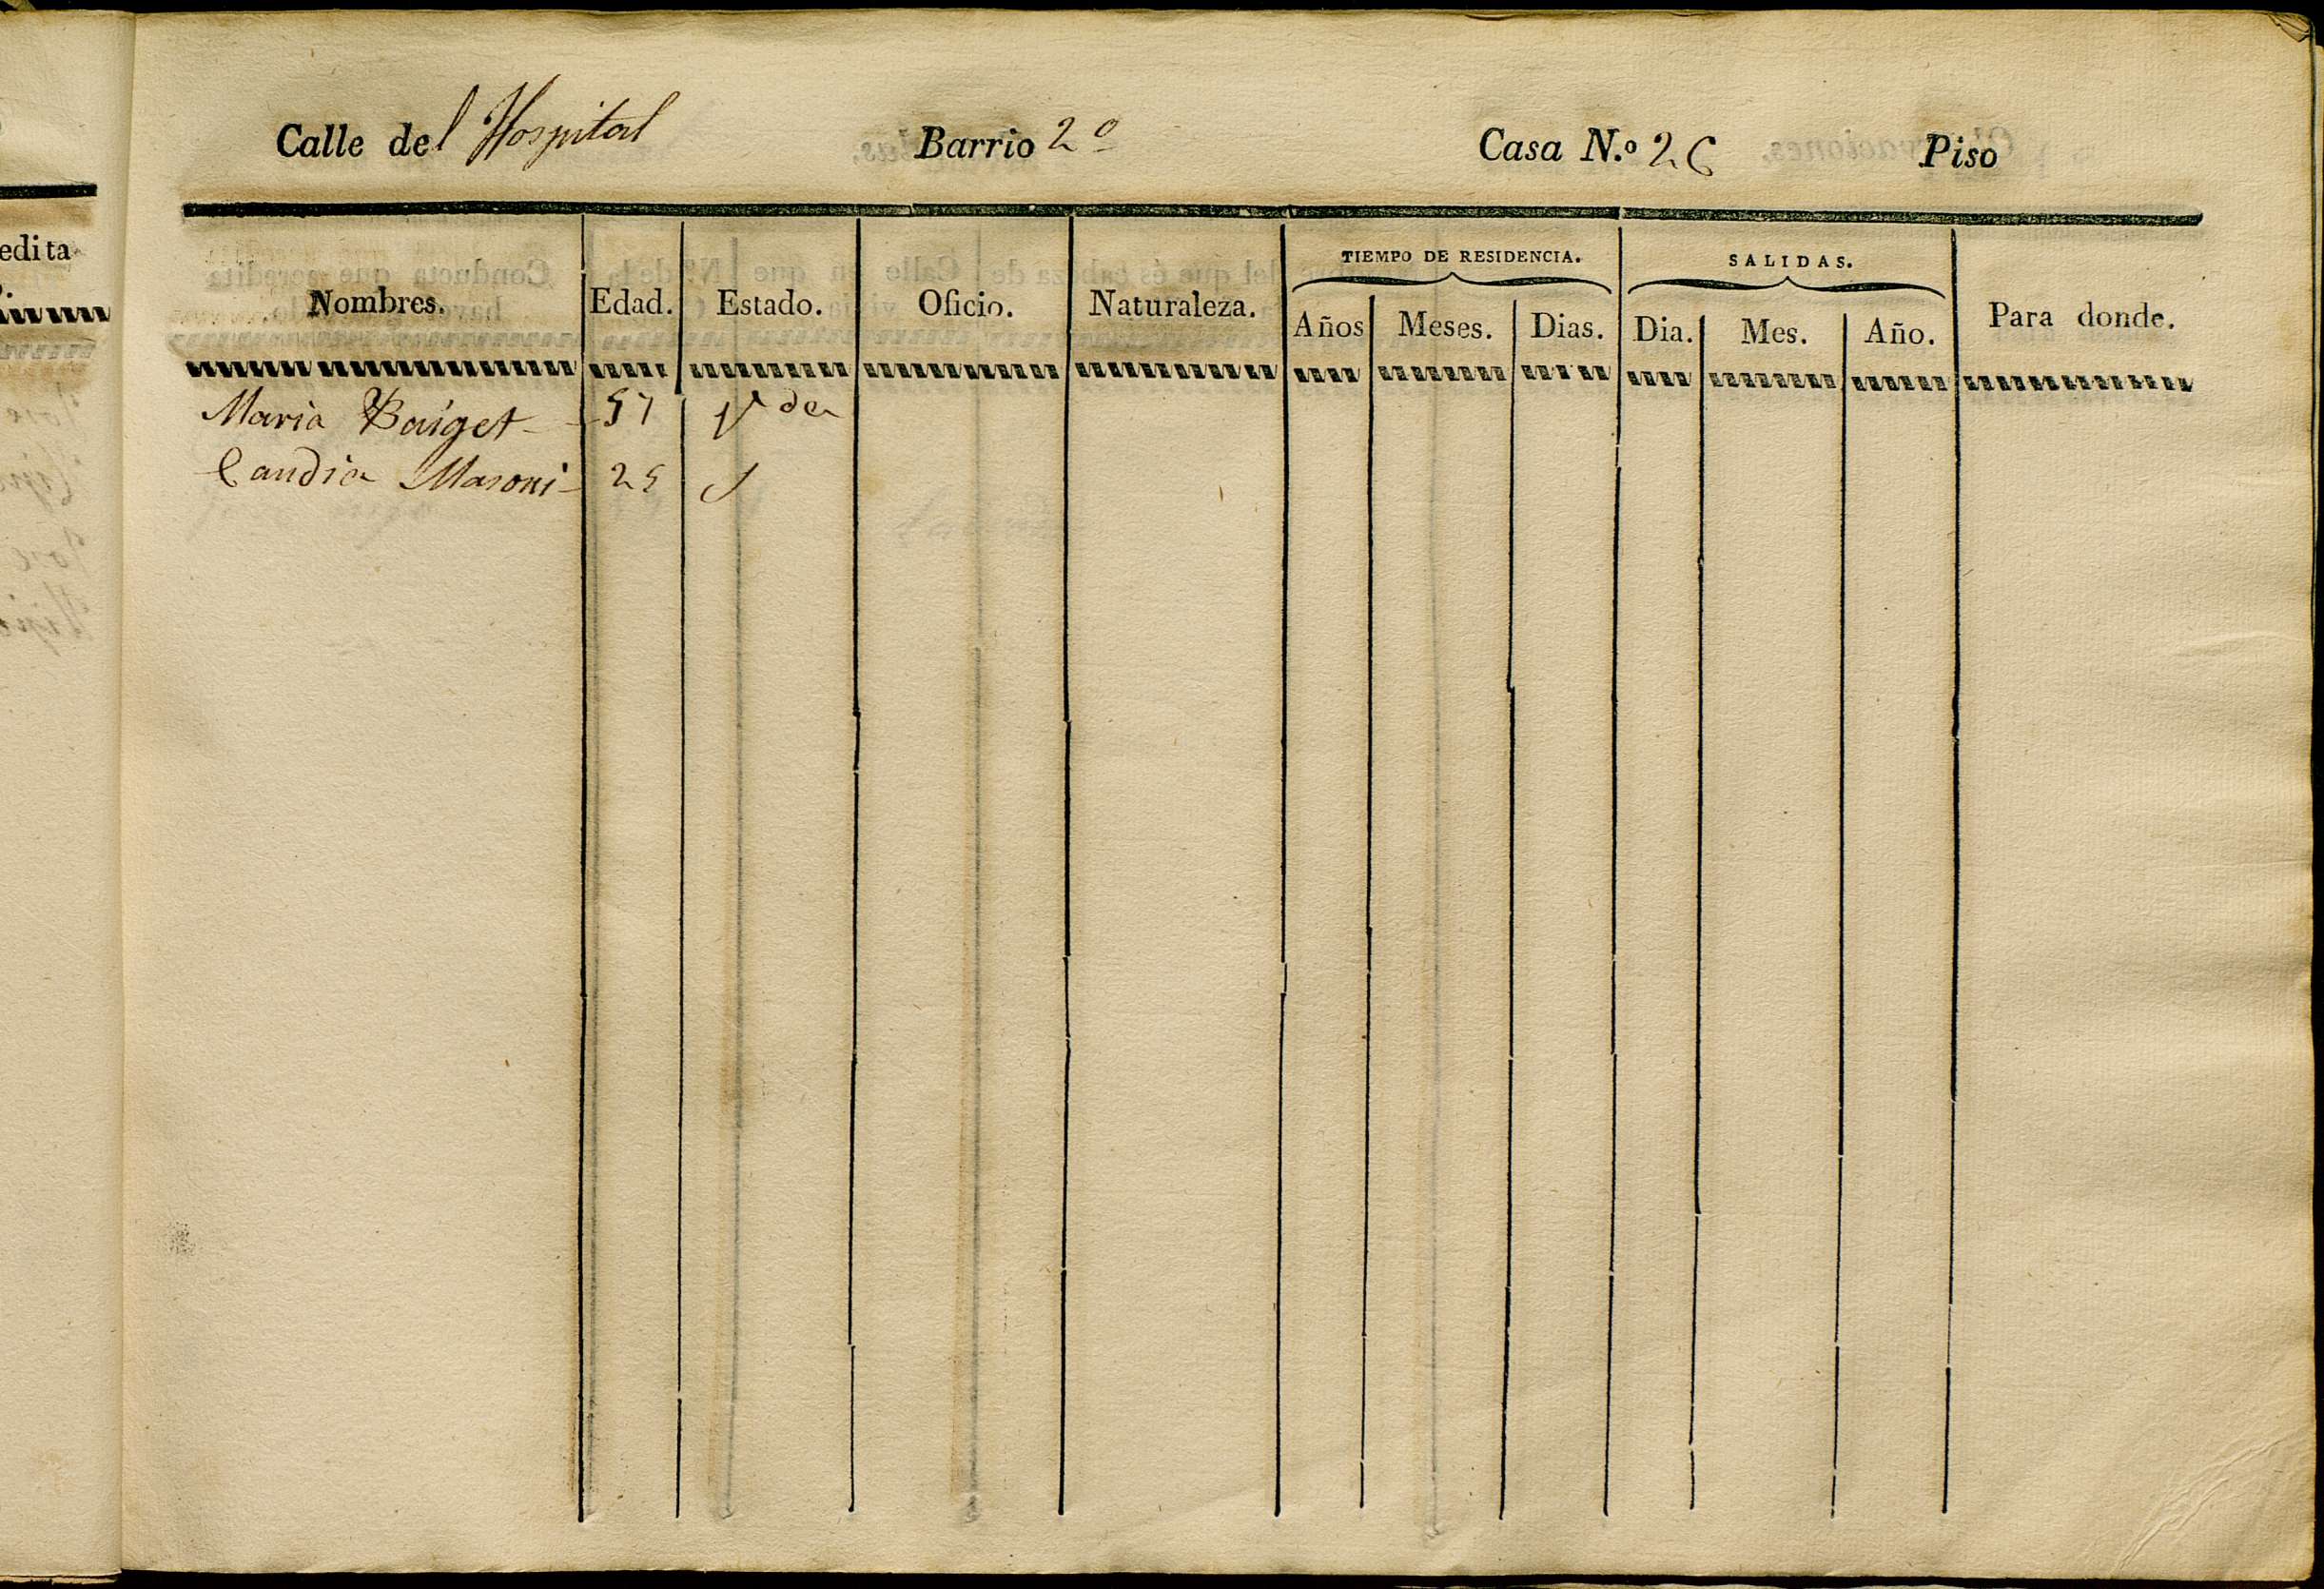 edita
Calle del Hospital Barrio 2º Casa N.º 26 Piso
TIEMPO DE RESIDENCIA. SALIDAS.
Nombres. Edad. Estado. Oficio. Naturaleza. Años Meses. Dias. Dia. Mes. Año. Para donde.
Maria Baiget 57 Vda
Candia Masoni 25 S